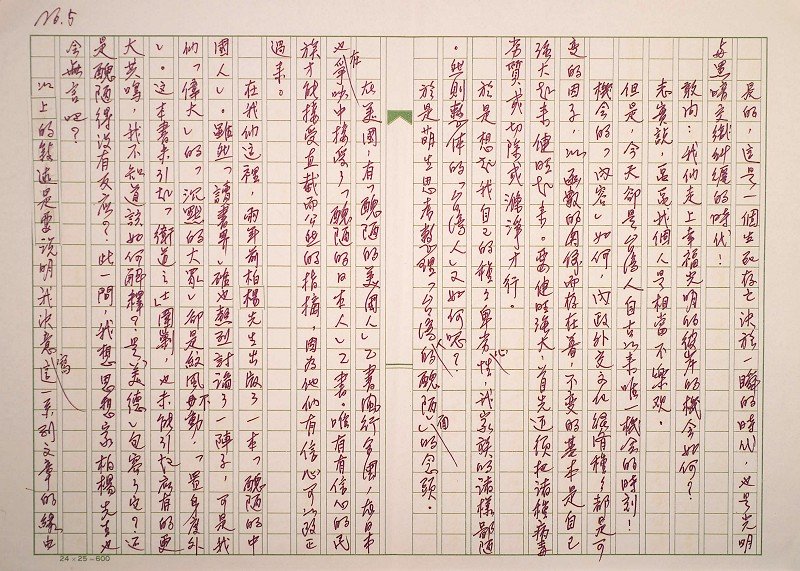 No.5
是的,這是一個生死存亡決於一瞬的時代,也是光明
與黑暗交織糾纏的時代!
敢問:我們走上幸福光明的彼岸的機會如何?
老實說,這一點我個人是相當不樂觀。
但是,今天卻是台灣人自古以來唯一機會的時刻!
機會的「內容」如何,內政外交文化經濟種種都是可
變的因子,以函數的關係而存在著,不變的基本是自己
強大起來健旺起來。要健旺強大,首先必須把諸種病毒
劣質,革切除或滌淨才行。
於是想起我自己的種種卑劣性,我家族的諸樣鄙陋
心
。然則整體的「台灣人」又如何呢?
於是萌生思考整理「台灣人的醜陋面」的念頭。
在美國,有「醜陋的美國人」乙書風行全國,在日本
也在爭吵中接受了「醜陋的日本人」乙書。唯有有信心的民
族才能接受直截而公然的指摘,因為他們有信心可以改正
過來。
在我們這裡,兩年前柏楊先生出版了一本「醜陋的中
國人」。雖然「讀書界」確也熱烈討論了一陣子,可是我
們「偉大」的「沉默的大眾」卻是紋風不動,「置自度外
」。這本書未引起「衛道之士」圍剿,也未能引起應有的更
大共鳴,我不知道該如何解釋?是「美德」包容了它?還
是醜陋得沒有反應?此一問,我想思想家柏楊先生也
會無言吧?
以上的敘述是要說明我決意寫這一系列文章的緣由
24×25=600